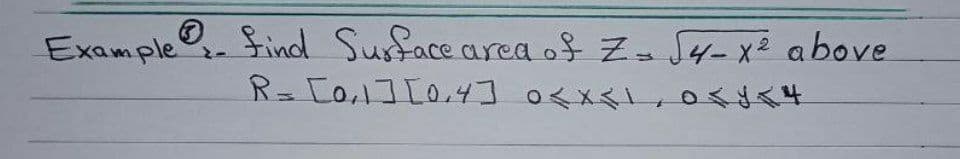 Example ①:- find Surface area of Z = √4-x² above
R = [0,1][0,4] 0≤x≤1, 0≤y≤4